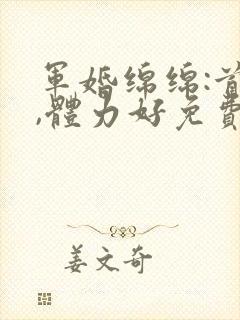 軍婚綿綿:首
,體力好免費
姜文奇